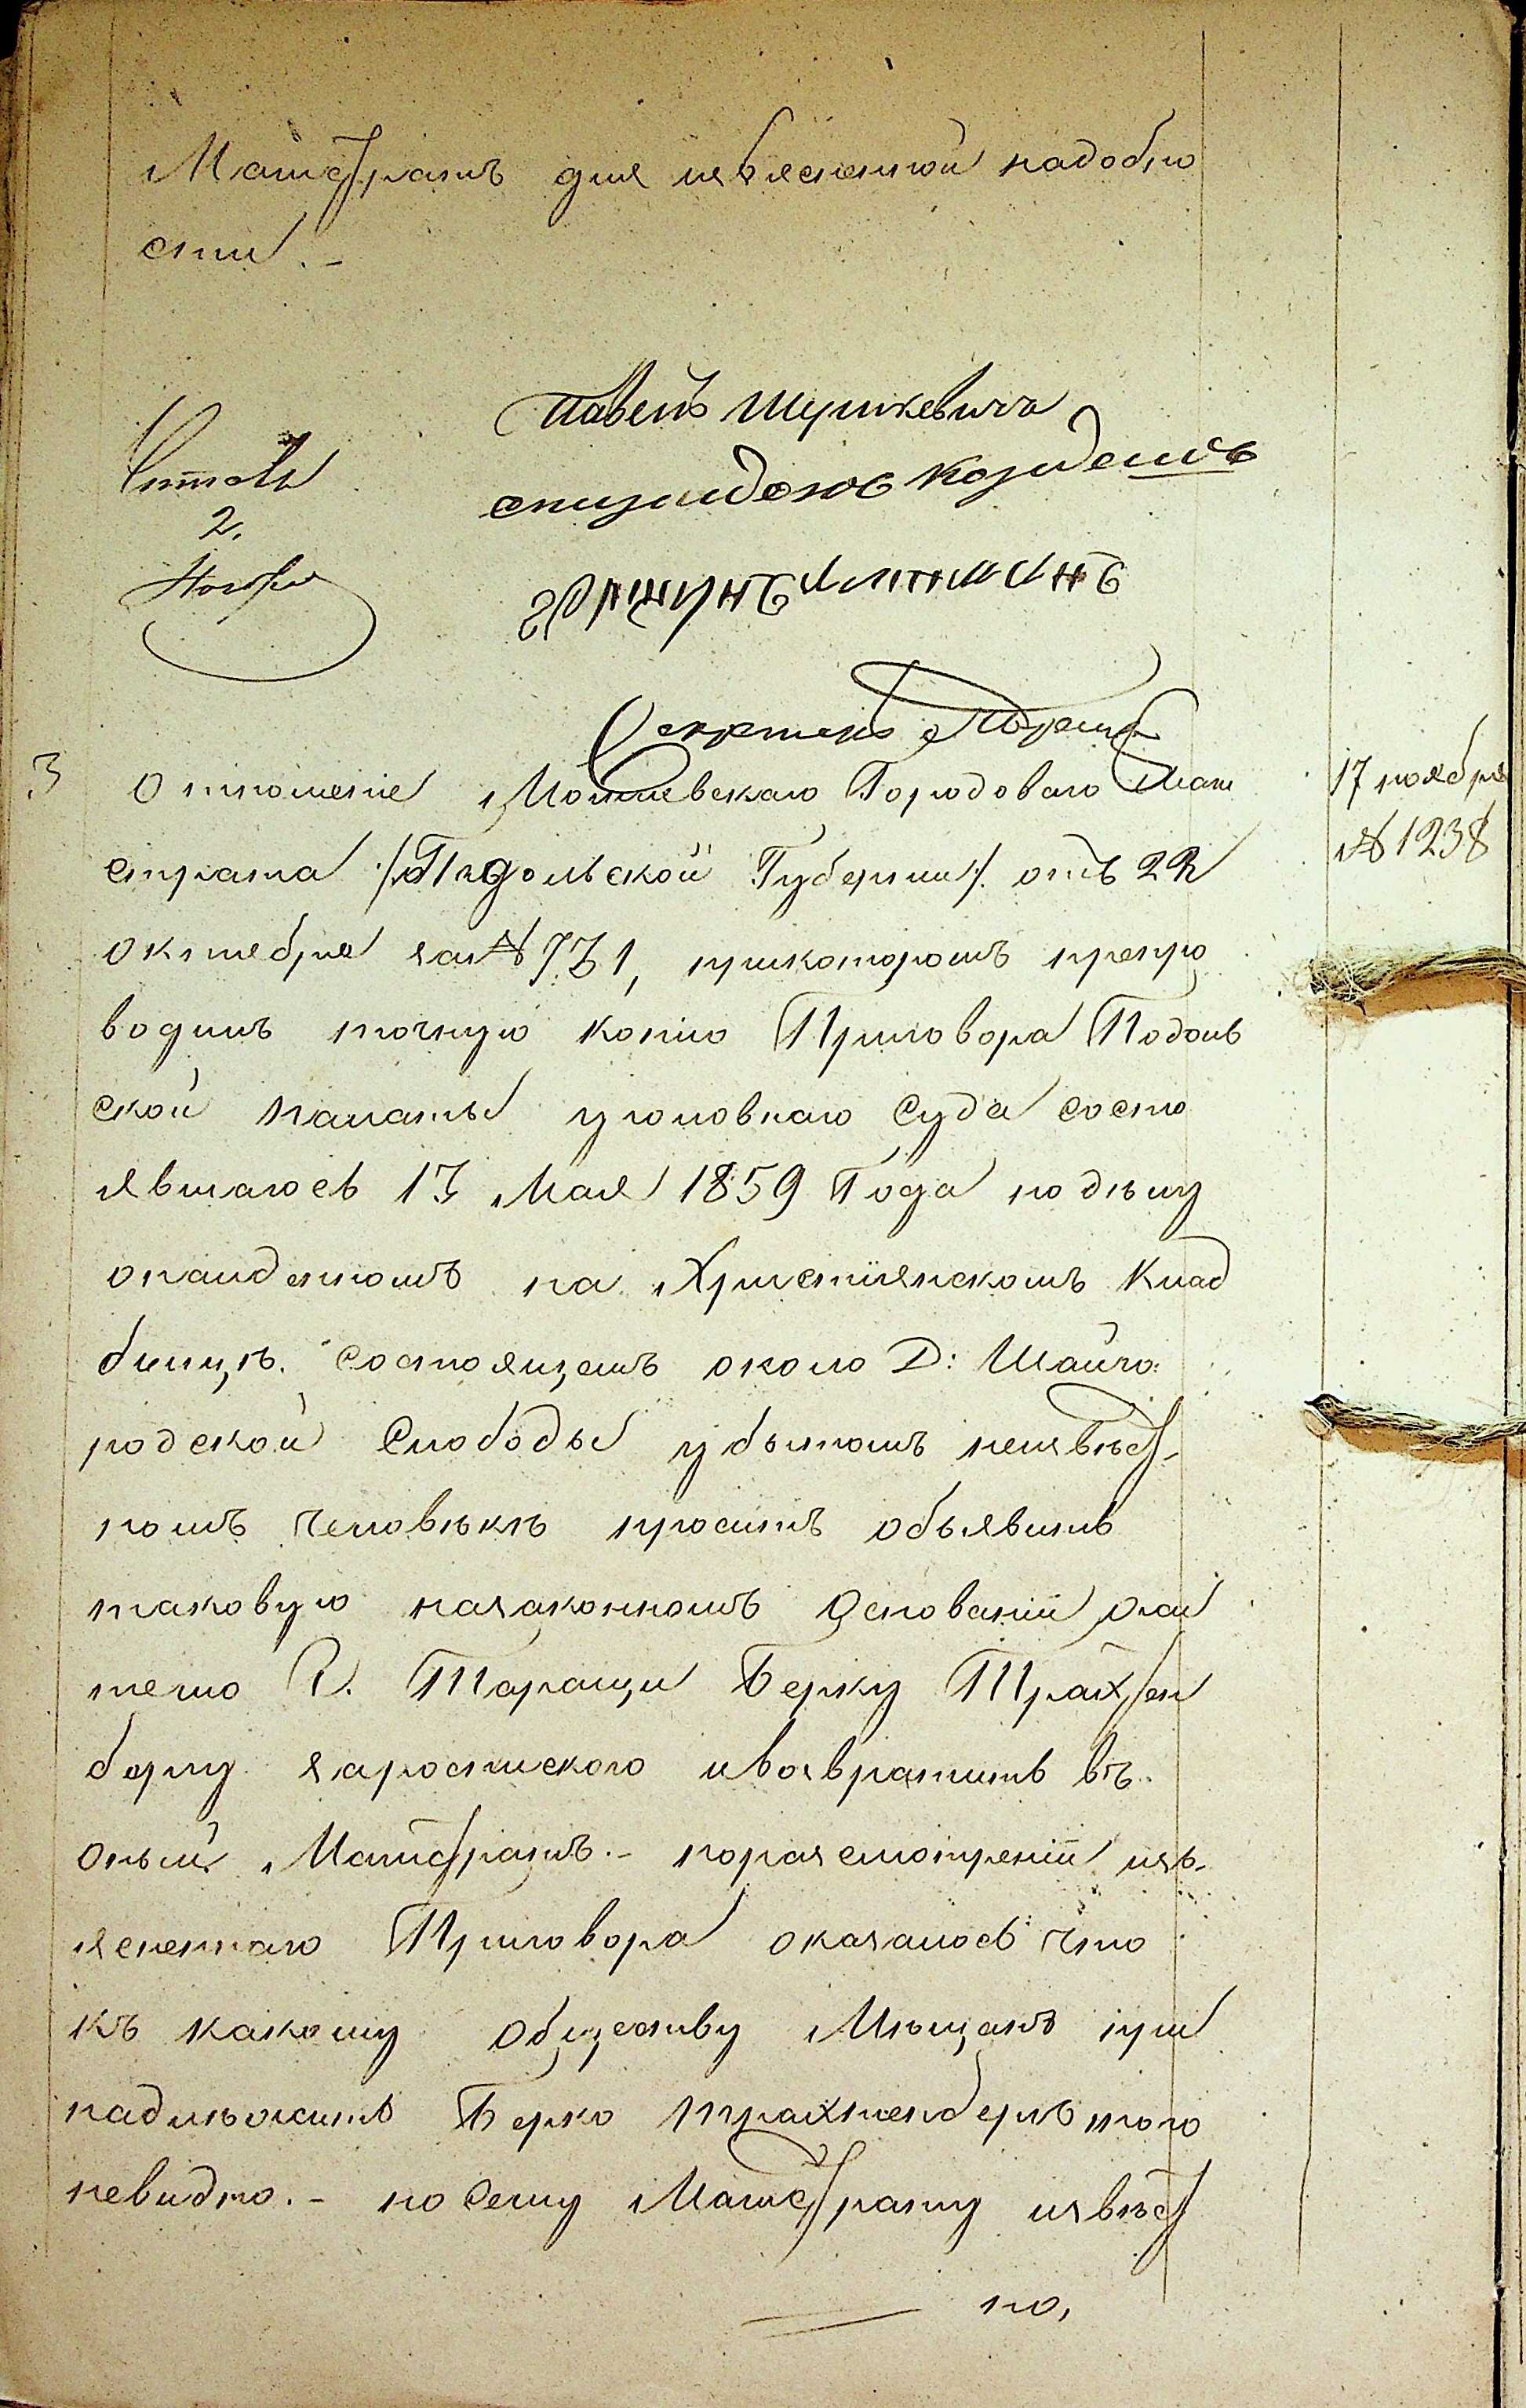 Магистратъ для изъясненной надобно
сти. -
Павелъ Шуткевичъ
Читалъ
2.
Секретарь
3 Отношеніе Могилевскаго Городоваго Маги
17 ноября
страта /:Подольской Губерніи:/. отъ 22
№ 1238
октебря за № 731, прикоторомъ препро
водитъ точную копію Приговора Подоль
ской палаты уголовнаго Суда состо
явшагося 13 Мая 1859 Года подѣлу
онайденномъ на Христіянскомъ Клад
бищѣ. состоящемъ около Д: Шайго:
родской Слободы убытомъ неизвѣст-
номъ человѣкѣ проситъ объявить
таковую назаконномъ Основаніи, жи
телю Г. Таращи Берку Трахтен
бергу зароспискою ивозвратить въ
оный Магистратъ. - поразсмотреніи изъ-
ясненнаго Приговора оказалось что
къ какому обществу Мѣщанъ при
надлѣжитъ Берко трахтенбергъ того
невидно. - по Сему Магистрату извѣст
но,